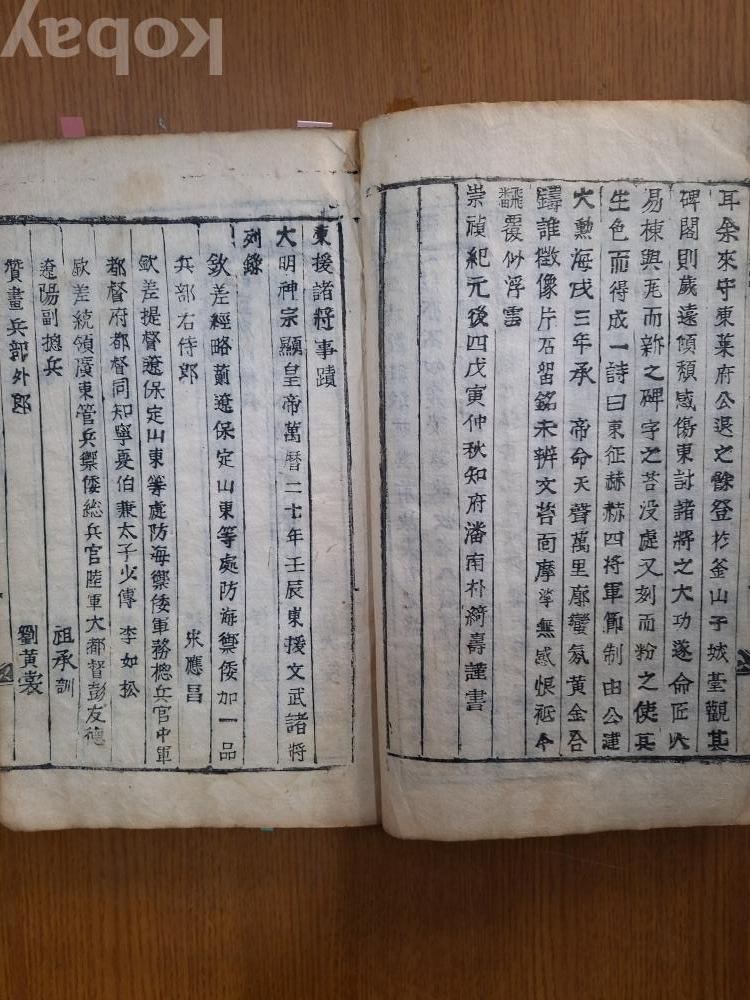 耳余來守東萊府公退之餘登杵釜山子城臺觀其
碑閣則歲遠傾頹感傷東討諸將之大功遂命匠人
易棟與瓦而新之碑字之苔没處又刻而粉之使其
生色而得成一詩曰東征赫赫四將軍節制由公建
大勲海戍三年承 帝命天聲萬里廓蠻氛黃金合
鑄誰徵像片石留銘未辨文苔面摩挲無感恨祗今
飜覆似浮雲
崇禎紀元後四戊寅仲秋知府潘南朴綺壽謹書
東援諸將事蹟
大明神宗顯皇帝萬曆二十年壬辰東援文武諸將
列錄
欽差經略薊遼保定山東等處防海禦倭加一品
兵部右侍郎 宋應昌
欽差提督遼保定山東等處防海禦倭軍務總兵官中軍
都督府都督同知寧夏伯兼太子少傅 李如松
欽差統領廣東管兵禦倭総兵官陸軍大都督彭友德
遼陽副摠兵 祖承訓
贊畫兵部外郎 劉黃裳
kobay